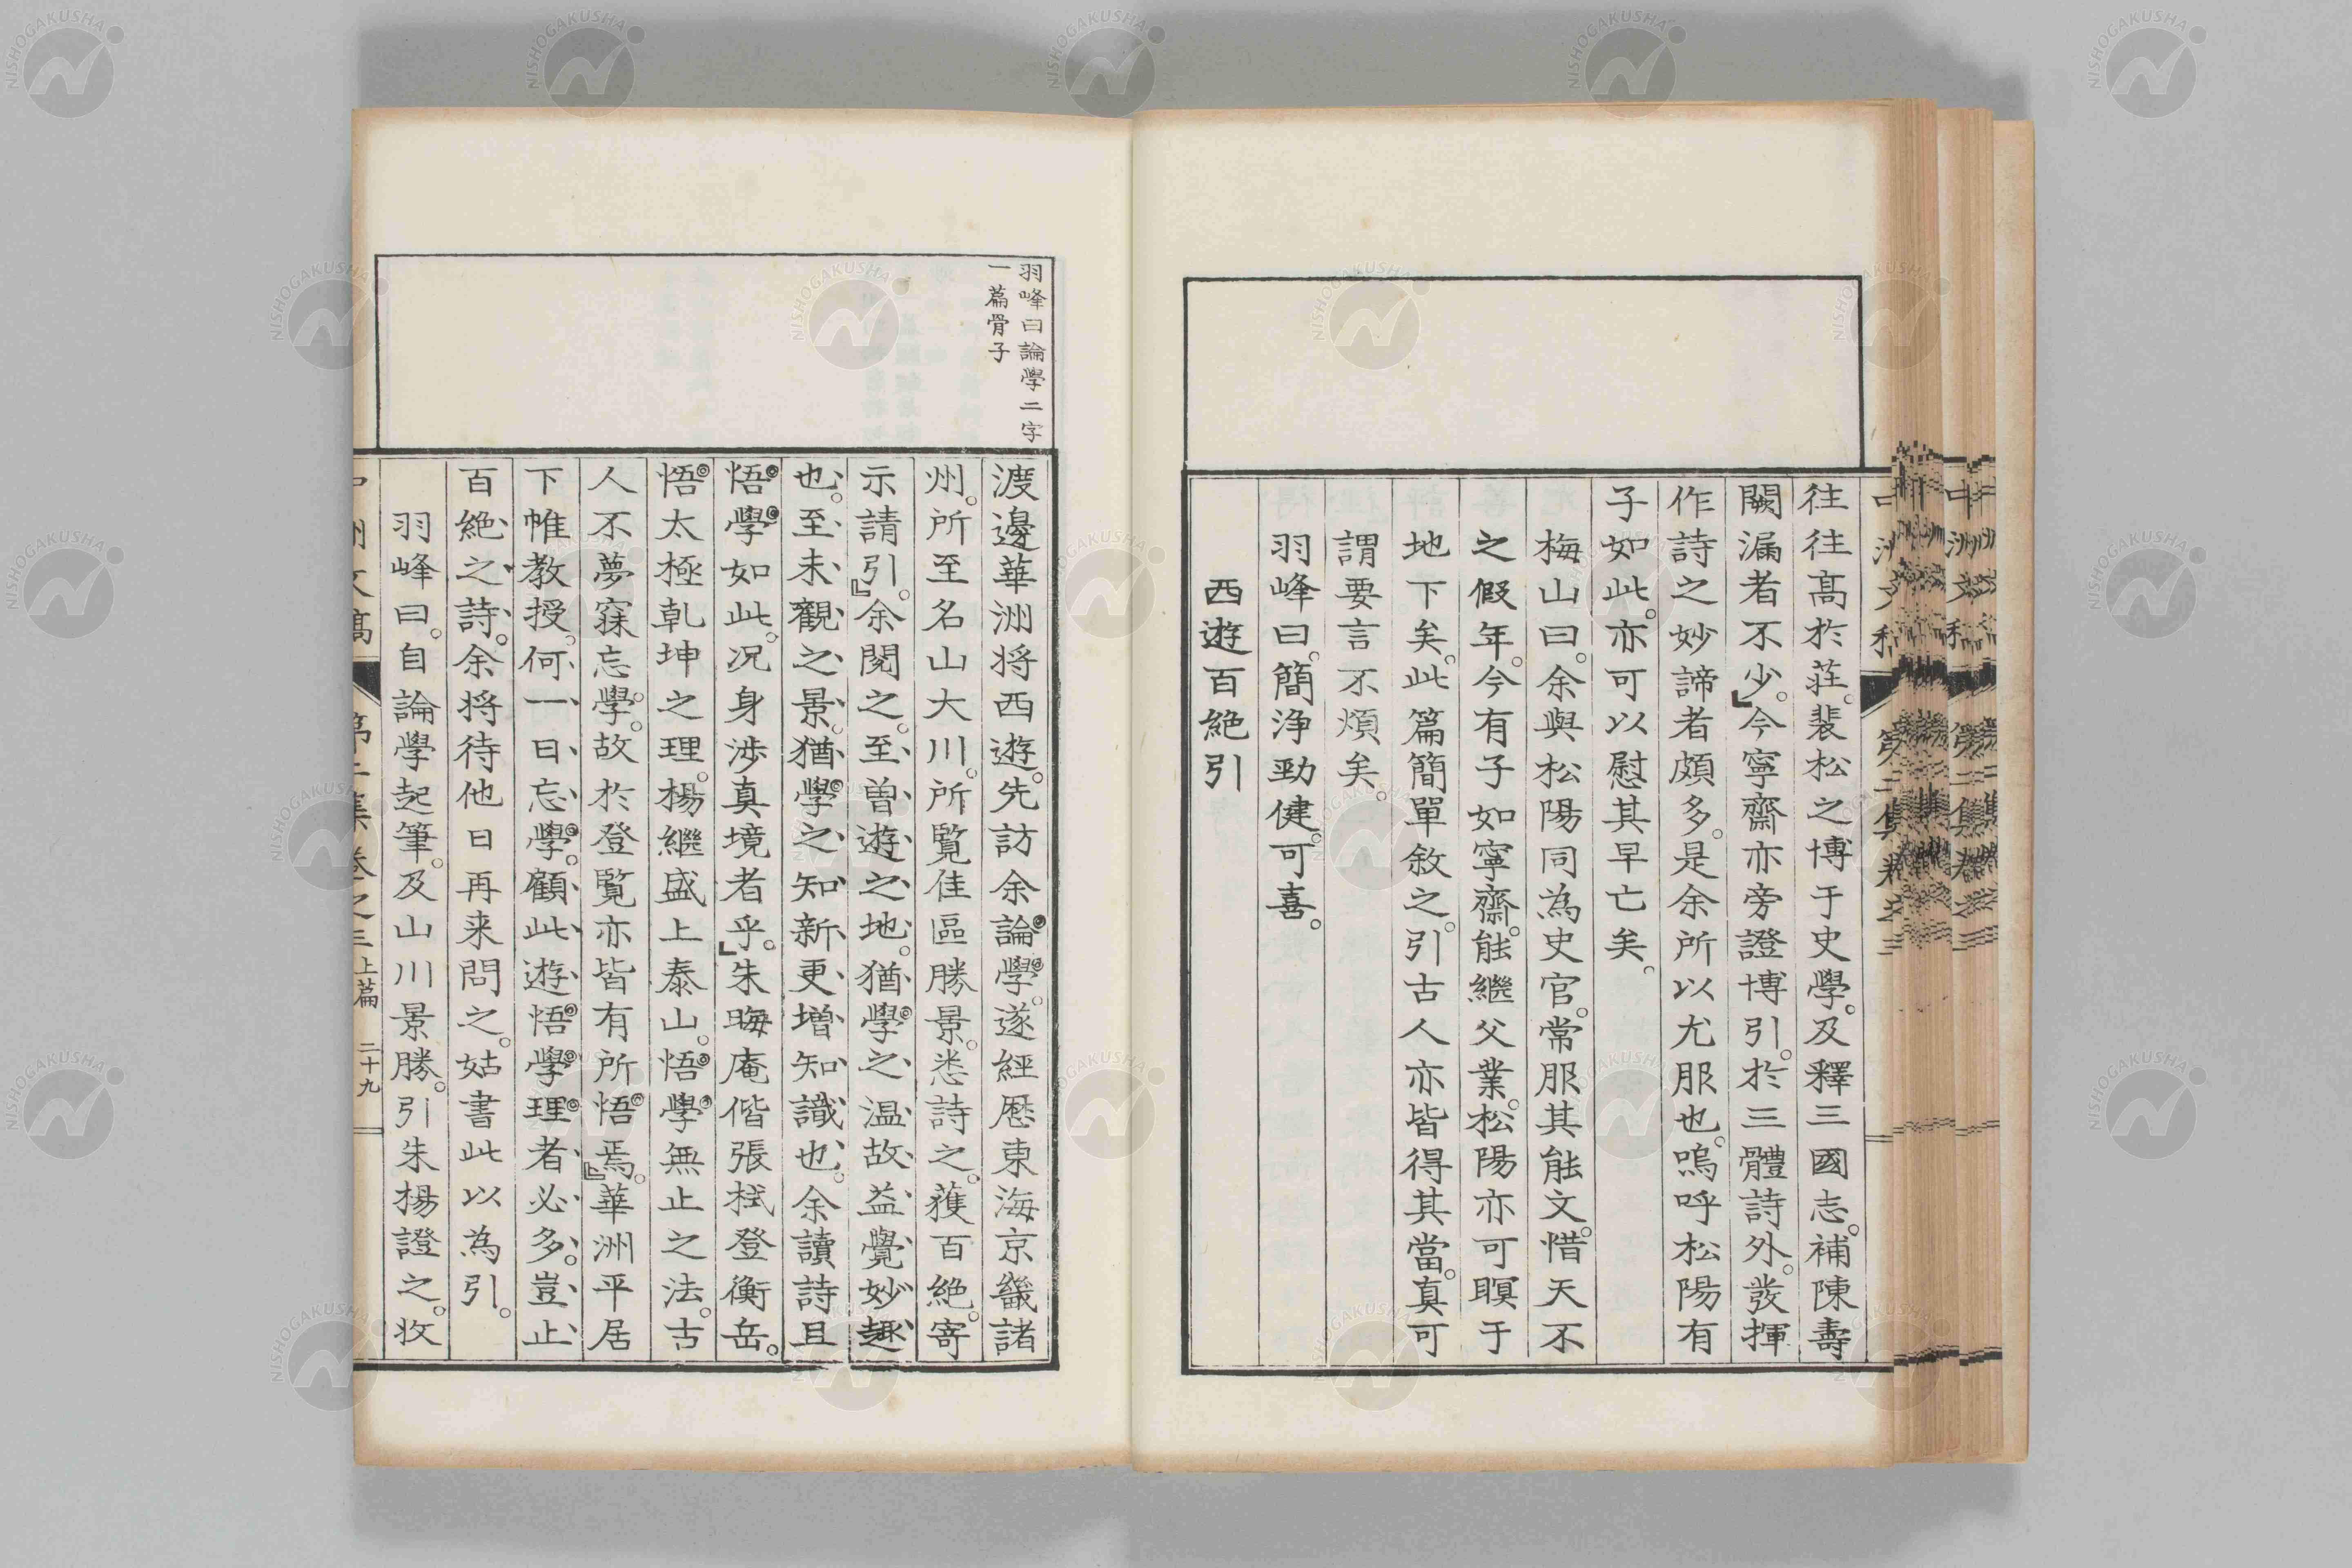 往往高於莊。裴松之博于史學。及釋三國志。補陳壽
闕漏者不少。』今寧齋亦旁證博引。於三體詩外。發揮
作詩之妙諦者頗多。是余所以尤服也。嗚呼松陽有
子如此。亦可以慰其早亡矣。
梅山曰。余與松陽同為史官。常服其能文。惜天不
之假年。今有子如寧齋。能繼父業。松陽亦可瞑于
地下矣。此篇簡單敘之。引古人亦皆得其當。真可
謂要言不煩矣。
羽峰曰。簡淨勁健。可喜。
西遊百絕引
羽峰曰論學二字
一篇骨子
渡邊華洲將西遊。先訪余論學。遂經歷東海京畿諸
州。所至名山大川。所覽佳區勝景。悉詩之。獲百絕。寄
示請引。』余閱之。至曾遊之地。猶學之溫故、益覺妙趣
也。至未觀之景。猶學之知新、更增知識也。余讀詩且
悟學如此。況身涉真境者乎。』朱晦庵偕張栻登衡岳。
悟太極乾坤之理。楊繼盛上泰山。悟學無止之法。古
人不夢寐忘學。故於登覽亦皆有所悟焉。』華洲平居
下帷教授。何一日忘學。顧此遊悟學理者必多。豈止
百絕之詩。余將待他日再來問之。姑書此以為引。
羽峰曰。自論學起筆。及山川景勝。引朱楊證之。收
中洲文稿 第二集卷之三上篇 二十九
NISHOGAKUSHA